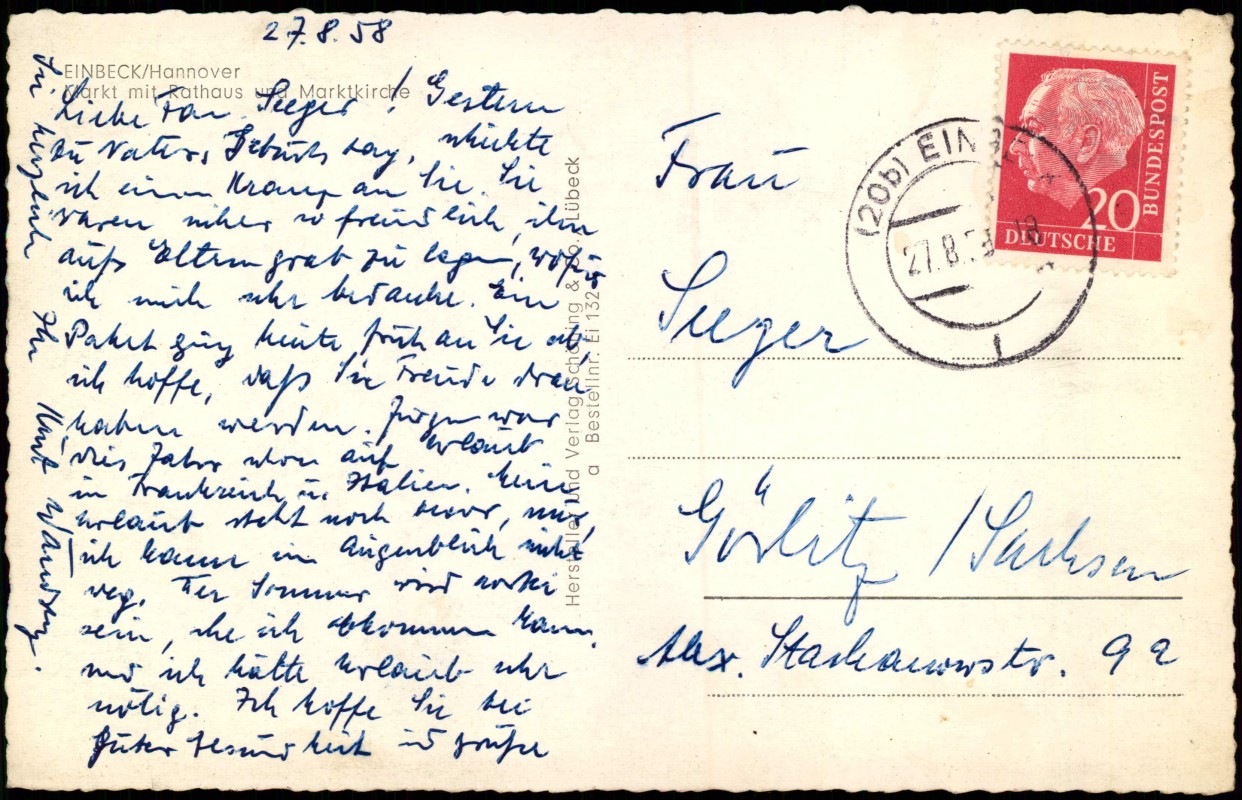 27.8.58
EINBECK/Hannover
Markt mit Rathaus und Marktkirche
Liebe Frau Seeger! Gestern
zu Vaters Geburtstag, schickte
ich einen Kranz an Sie. Sie
waren sicher so freundlich, ihn
aufs Elterngrab zu legen, wofür
ich mich sehr bedanke. Ein
Paket ging heute früh an Sie ab,
ich hoffe, daß Sie Freude dran
haben werden. Jürgen war
dies Jahr schon auf Urlaub
in Frankreich u. Italien. Mein
Urlaub steht noch bevor, nur,
ich kann im Augenblick nicht
weg. Der Sommer wird vorbei
sein, ehe ich abkommen kann
und ich hätte Urlaub sehr
nötig. Ich hoffe Sie bei
guter Gesundheit und grüße
Sie herzlich Ihr Kurt
Hersteller und Verlag Schöning & Co., Lübeck
a Bestellnr. Ei 132
(20b) EINBECK
27.8.58-18
1
DEUTSCHE
BUNDESPOST
20
Frau
Seeger
Görlitz / Sachsen
Alex. Stachanowstr. 92